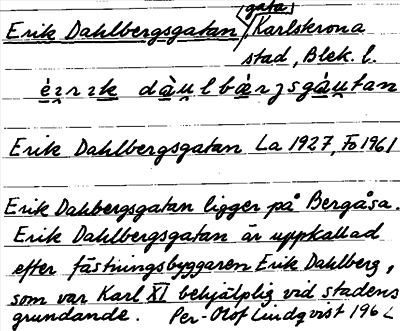 Erik Dahlbergsgatan, gata, Karlskrona
stad, Blek. l.
Erik Dahlbergsgatan La 1927, Fo 1961
Erik Dahbergsgatan ligger på Bergåsa.
Erik Dahlbergsgatan är uppkallad
efter fästningsbyggaren Erik Dahlberg,
som var Karl XI behjälplig vid stadens
grundande. Per-Olof Lindqvist 196